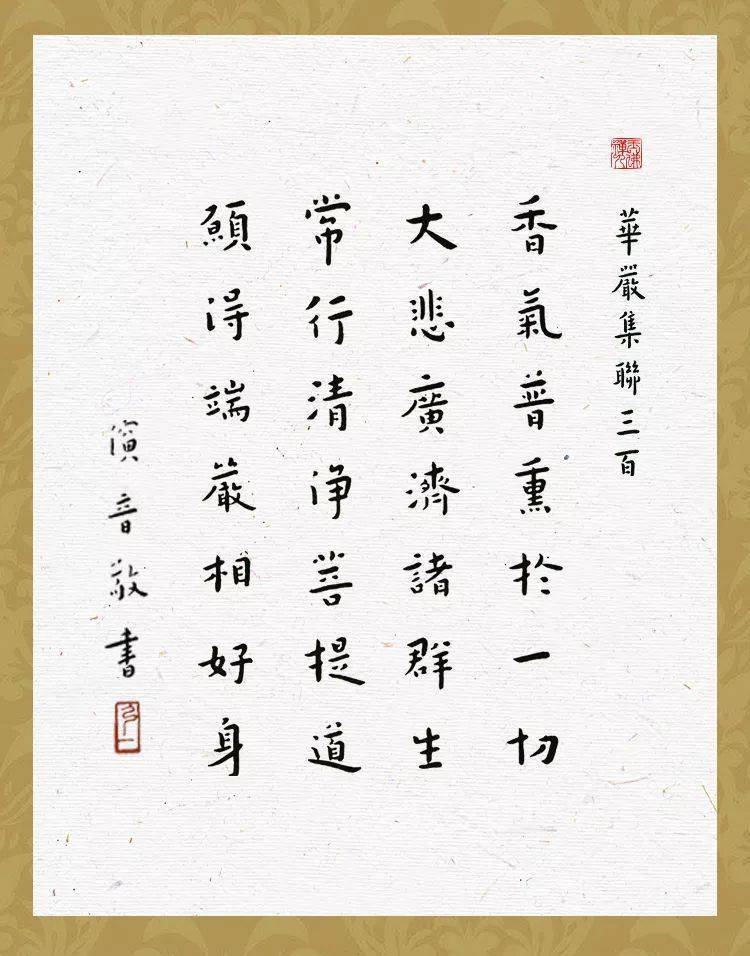 華嚴集聯三百
香氣普熏於一切
大悲廣濟諸群生
常行清淨菩提道
願得端嚴相好身
演音敬書
弘一